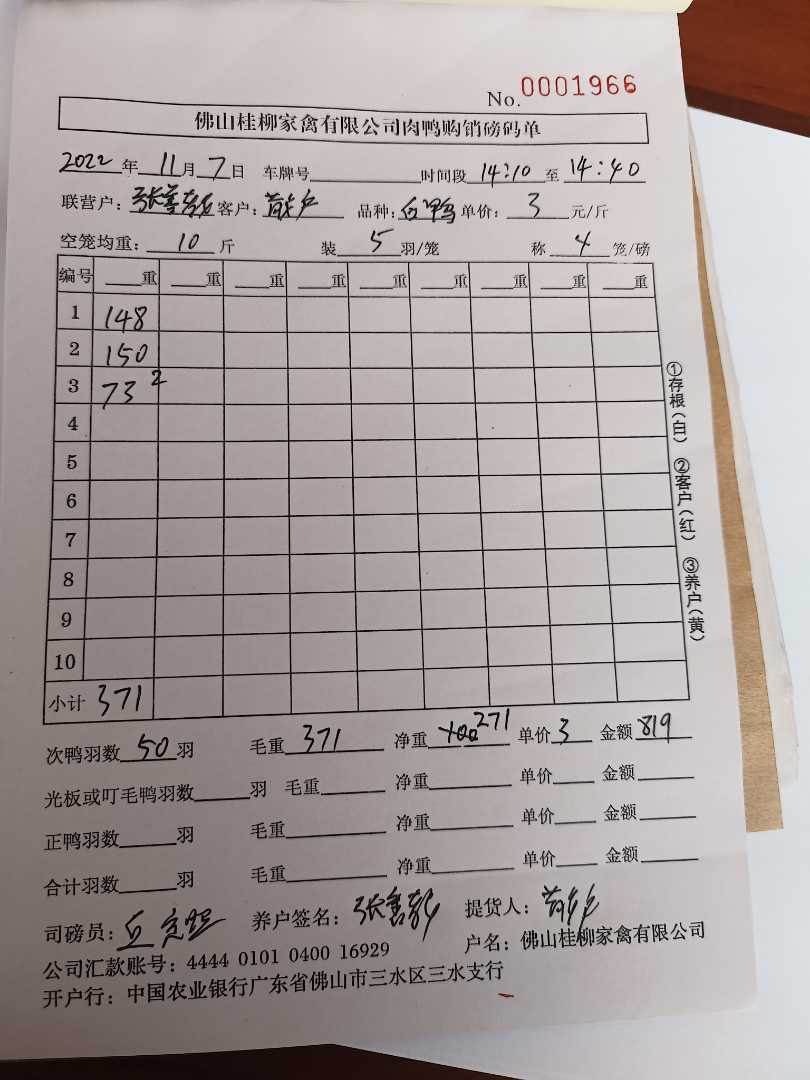 No. 0001966
佛山桂柳家禽有限公司肉鸭购销磅码单
2022年 11月 7日 车牌号 时间段 14:10 至 14:40
联营户： 客户：散户 品种：白鸭 单价：3 元/斤
空笼均重：10 斤 装 5 羽/笼 称 4 笼/磅
编号 重 重 重 重 重 重 重 重 重
1 148
2 150
3 73 2
4
5
6
7
8
9
10
小计 371
①存根(白) ②客户(红) ③养户(黄)
次鸭羽数 50 羽 毛重 371 净重 271 单价 3 金额 819
光板或叮毛鸭羽数 羽 毛重 净重 单价 金额
正鸭羽数 羽 毛重 净重 单价 金额
合计羽数 羽 毛重 净重 单价 金额
司磅员： 养户签名： 提货人：
公司汇款账号：4444 0101 0400 16929 户名：佛山桂柳家禽有限公司
开户行：中国农业银行广东省佛山市三水区三水支行